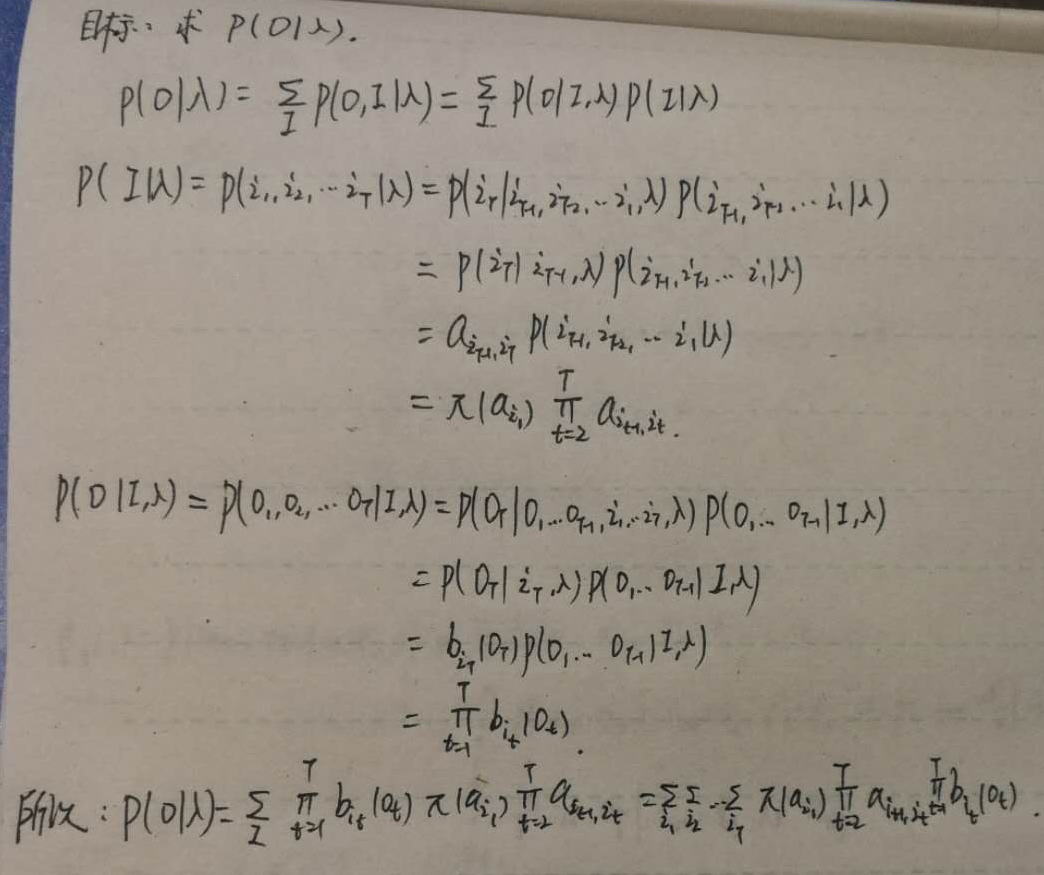 目标：求 P(O|λ).
P(O|λ) = Σ_I P(O,I|λ) = Σ_I P(O|I,λ) P(I|λ)
P(I|λ) = P(i₁,i₂,⋯i_T|λ) = P(i_T|i_{T-1},i_{T-2},⋯i₁,λ) P(i_{T-1},i_{T-2}⋯i₁|λ)
= P(i_T|i_{T-1},λ) P(i_{T-1},i_{T-2}⋯i₁|λ)
= a_{i_{T-1},i_T} P(i_{T-1},i_{T-2},⋯i₁|λ)
= π(a_{i₁}) ∏_{t=2}^{T} a_{i_{t-1},i_t}.
P(O|I,λ) = P(O₁,O₂,⋯O_T|I,λ) = P(O_T|O₁⋯O_{T-1},i₁⋯i_T,λ) P(O₁⋯O_{T-1}|I,λ)
= P(O_T|i_T,λ) P(O₁⋯O_{T-1}|I,λ)
= b_{i_T}(O_T) P(O₁⋯O_{T-1}|I,λ)
= ∏_{t=1}^{T} b_{i_t}(O_t).
所以：P(O|λ) = Σ_I ∏_{t=1}^{T} b_{i_t}(O_t) π(a_{i₁}) ∏_{t=2}^{T} a_{i_{t-1},i_t} = Σ_{i₁} Σ_{i₂} ⋯ Σ_{i_T} π(a_{i₁}) ∏_{t=2}^{T} a_{i_{t-1},i_t} ∏_{t=1}^{T} b_{i_t}(O_t).